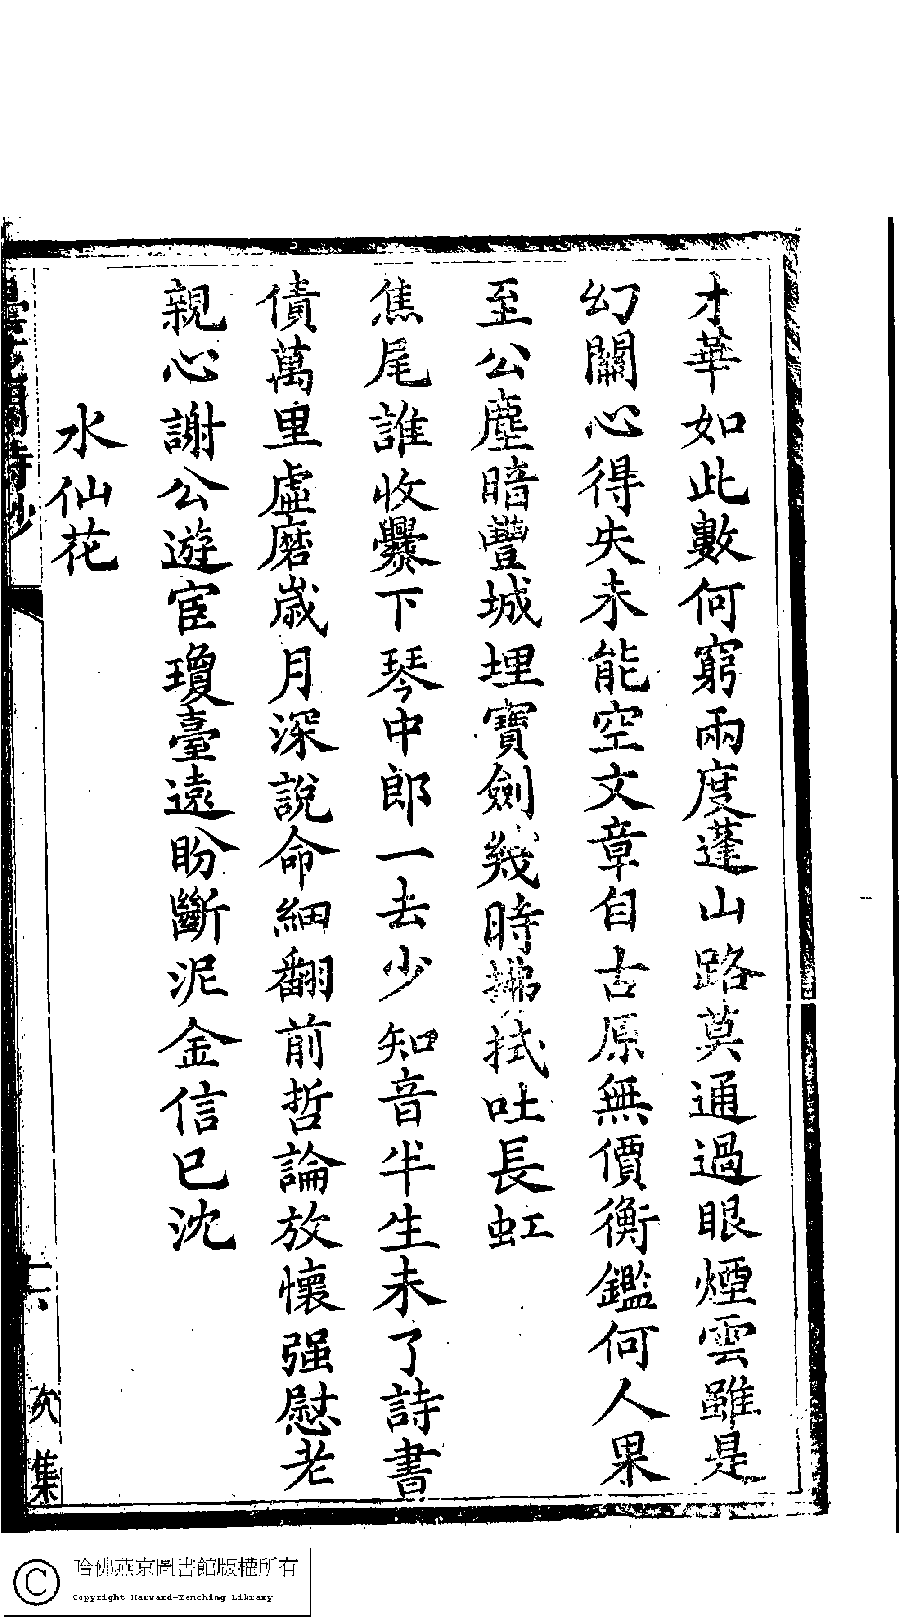 才華如此數何窮兩度蓬山路莫通過眼煙雲雖是
幻關心得失未能空文章自古原無價衡鑑何人果
至公塵暗豐城埋寶劍幾時拂拭吐長虹
焦尾誰收爨下琴中郎一去少知音半生未了詩書
債萬里虛磨歲月深說命細翻前哲論放懷强慰老
親心謝公遊宦瓊臺遠盼斷泥金信已沈
水仙花
詩鈔
次集
哈佛燕京圖書館版權所有
Copyright Harvard-Yenching Library